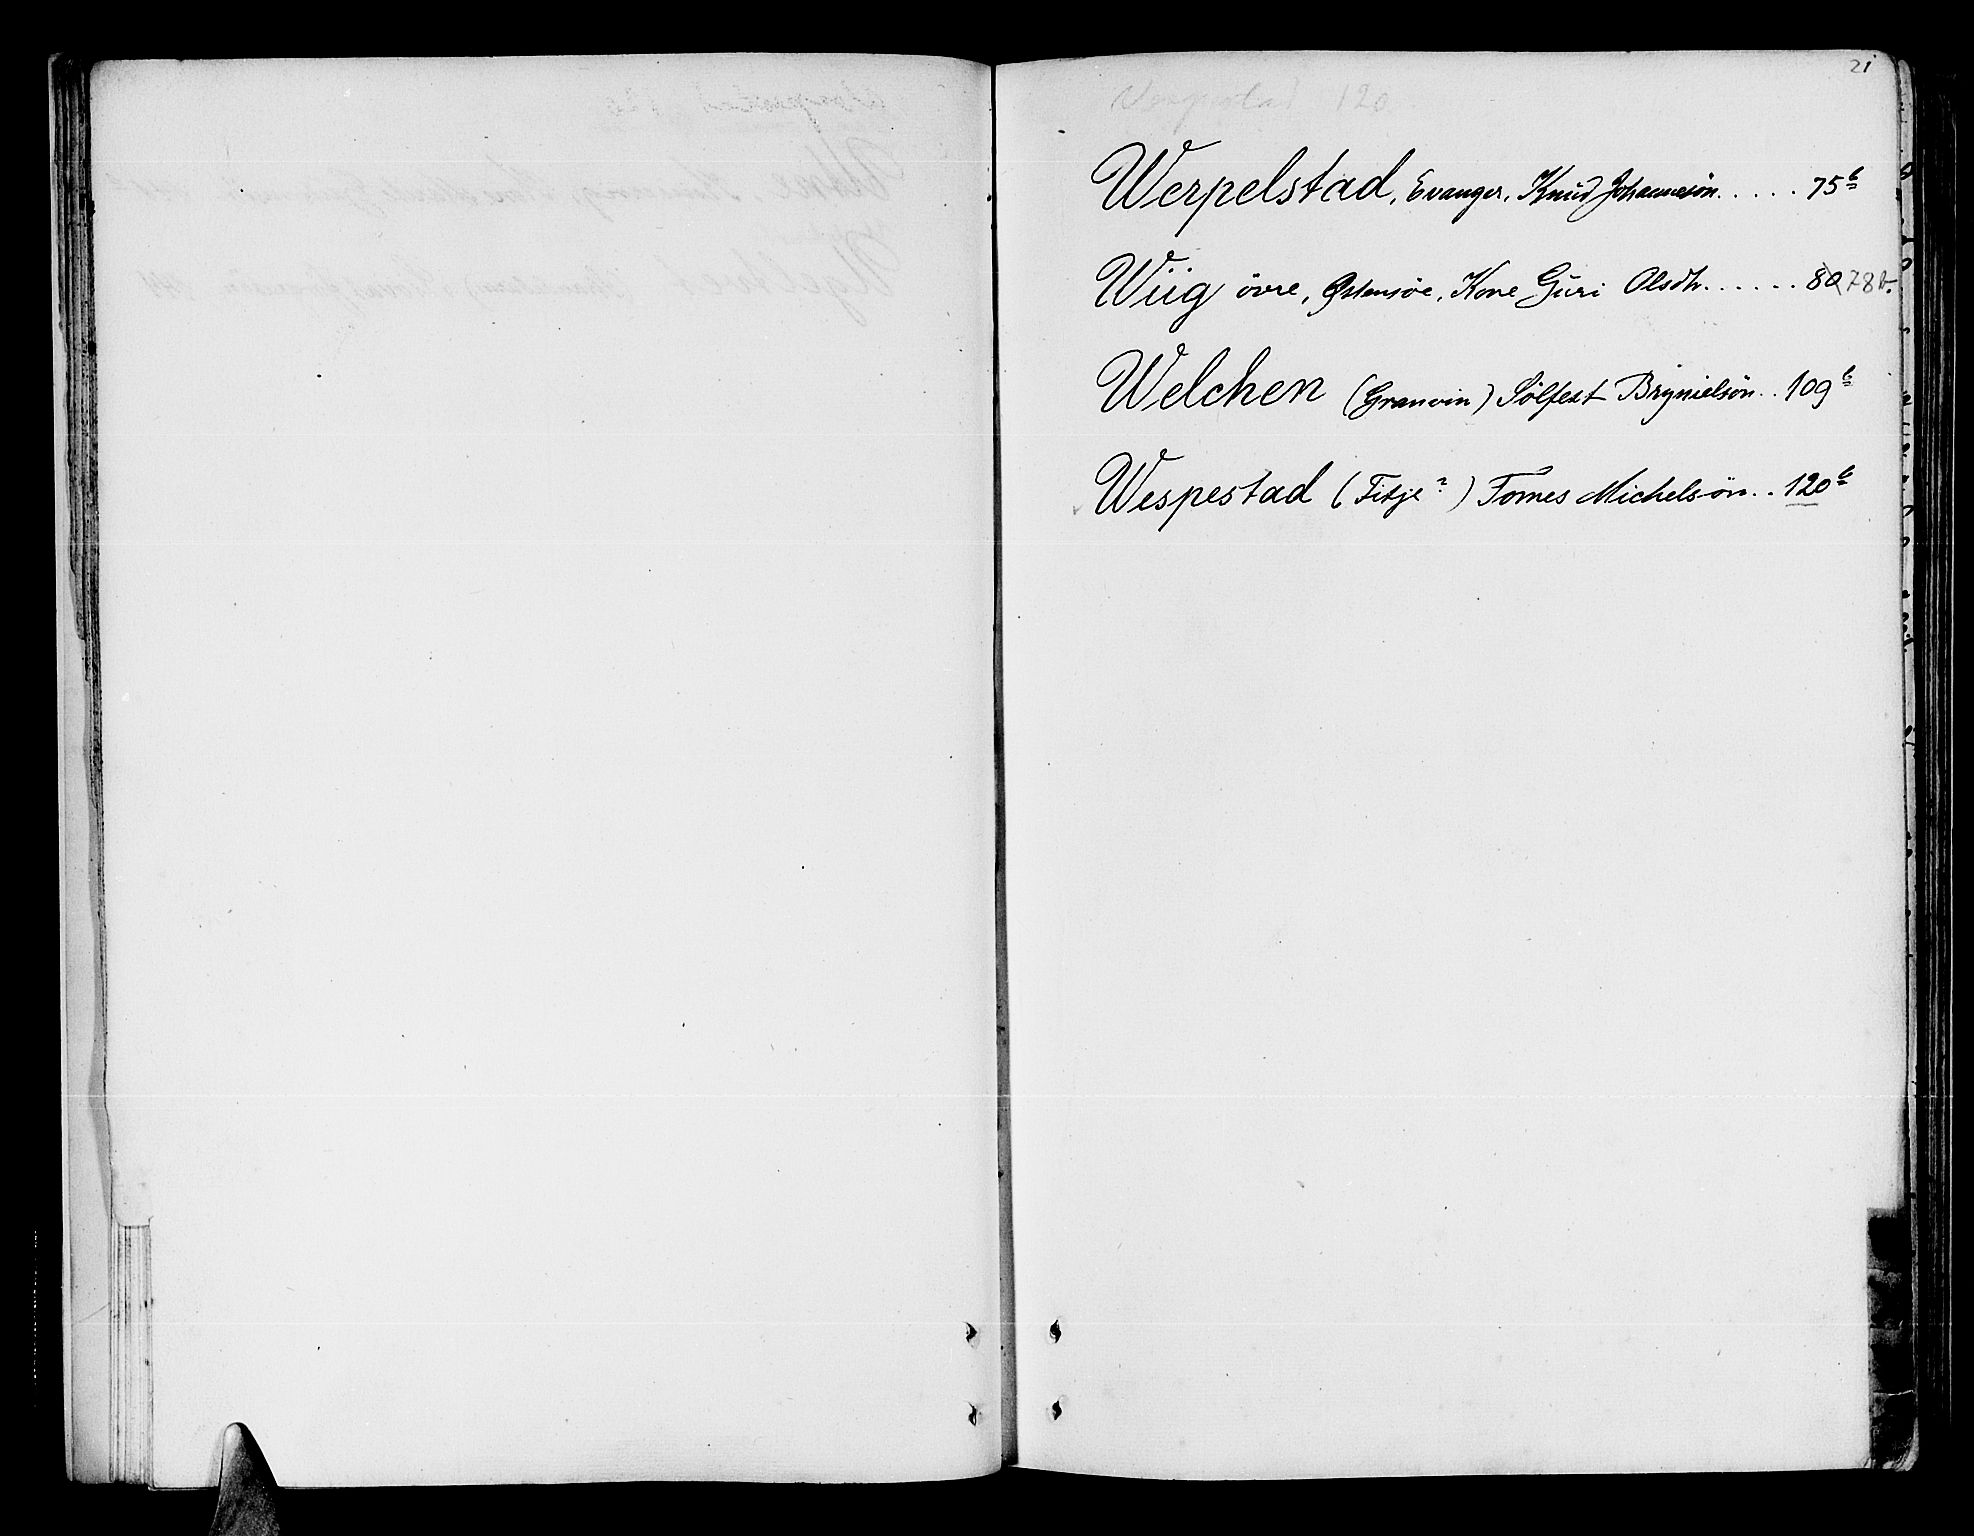 21
120
Werpelstad, Evanger, Knud Johannesön.....75b
Wiig övre, Østensöe, Kone Guri Olsdtr......80 78b.
Welchen (Granvin) Sölfest Brynielsön..109b
Wespestad (Fitje?) Tomes Michelsön..120b